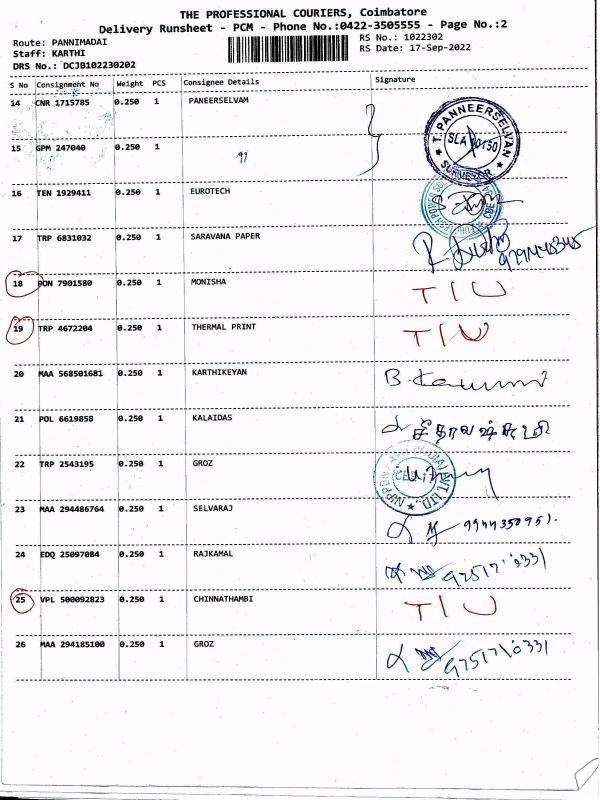 THE PROFESSIONAL COURIERS, Coimbatore
Delivery Runsheet - PCM - Phone No.:0422-3505555 - Page No.:2
Route: PANNIMADAI
RS No.: 1022302
Staff: KARTHI
RS Date: 17-Sep-2022
DRS No.: DCJB102230202
S No Consignment No Weight PCS Consignee Details Signature
14 CNR 1715785 0.250 1 PANEERSELVAM
T. PANNEERSELVAN
SURVEYOR
15 GPM 247040 0.250 1 "
16 TEN 1929411 0.250 1 EUROTECH
17 TRP 6831032 0.250 1 SARAVANA PAPER
18 PON 7901580 0.250 1 MONISHA T I U
19 TRP 4672204 0.250 1 THERMAL PRINT T I U
20 MAA 568501681 0.250 1 KARTHIKEYAN
21 POL 6619858 0.250 1 KALAIDAS
22 TRP 2543195 0.250 1 GROZ
23 MAA 294486764 0.250 1 SELVARAJ
24 EDQ 25097084 0.250 1 RAJKAMAL
25 VPL 500092823 0.250 1 CHINNATHAMBI T I U
26 MAA 294185100 0.250 1 GROZ